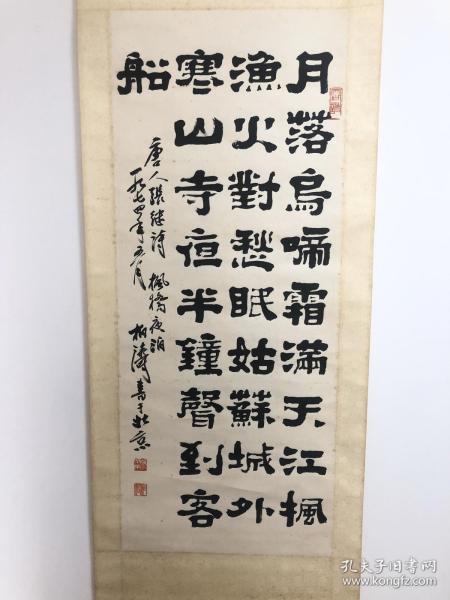 月落烏啼霜滿天江楓
漁火對愁眠姑蘇城外
寒山寺夜半鐘聲到客
船
唐人張继詩 楓橋夜泊
一九七四年月 柏濤書于北京
孔夫子旧书网
www.kongfz.com